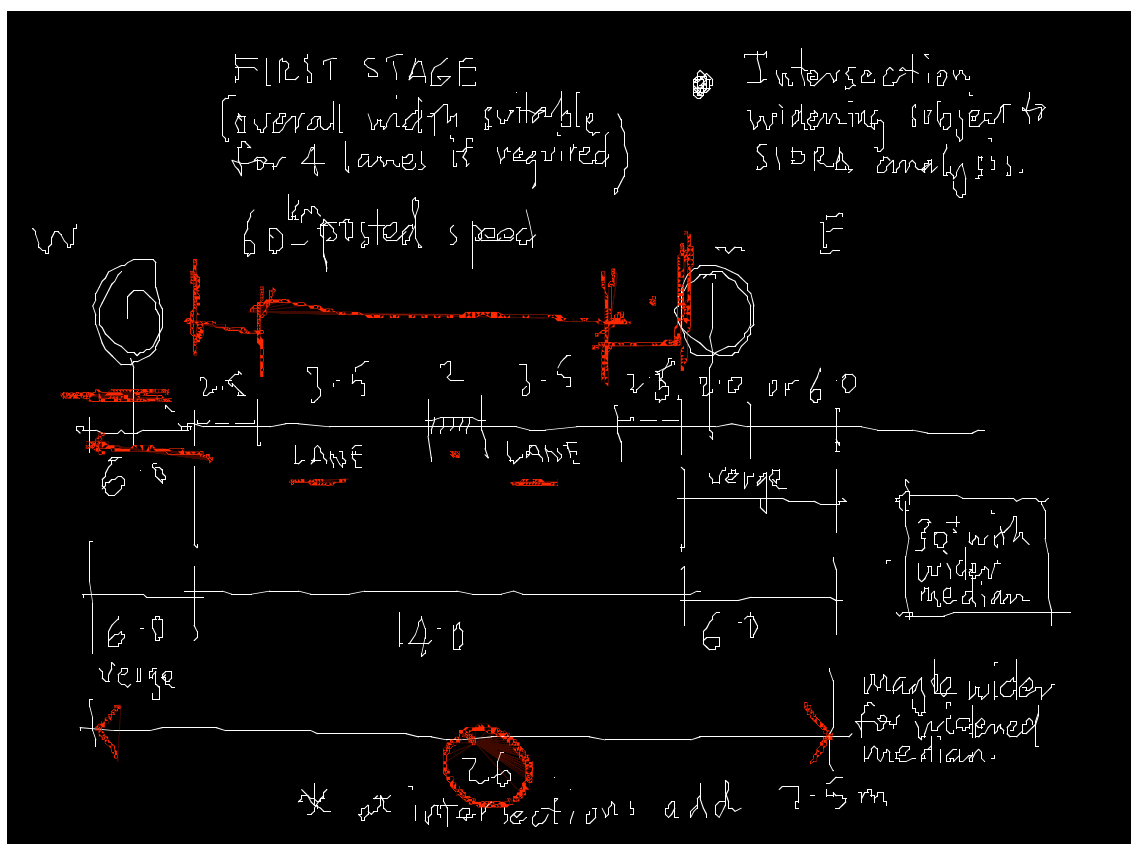 FIRST STAGE
(overall width suitable
for 4 lanes if required)
60 km posted speed
Intersection
widening subject to
SIDRA analysis.
W
E
2.5 3.5 2 3.5 2.5 2.0 or 6.0
LANE LANE
6.0
verge
30+ with
wider
median
6.0 14.0 6.0
verge
maybe wider
for widened
median.
26
* at intersections add 7.5m